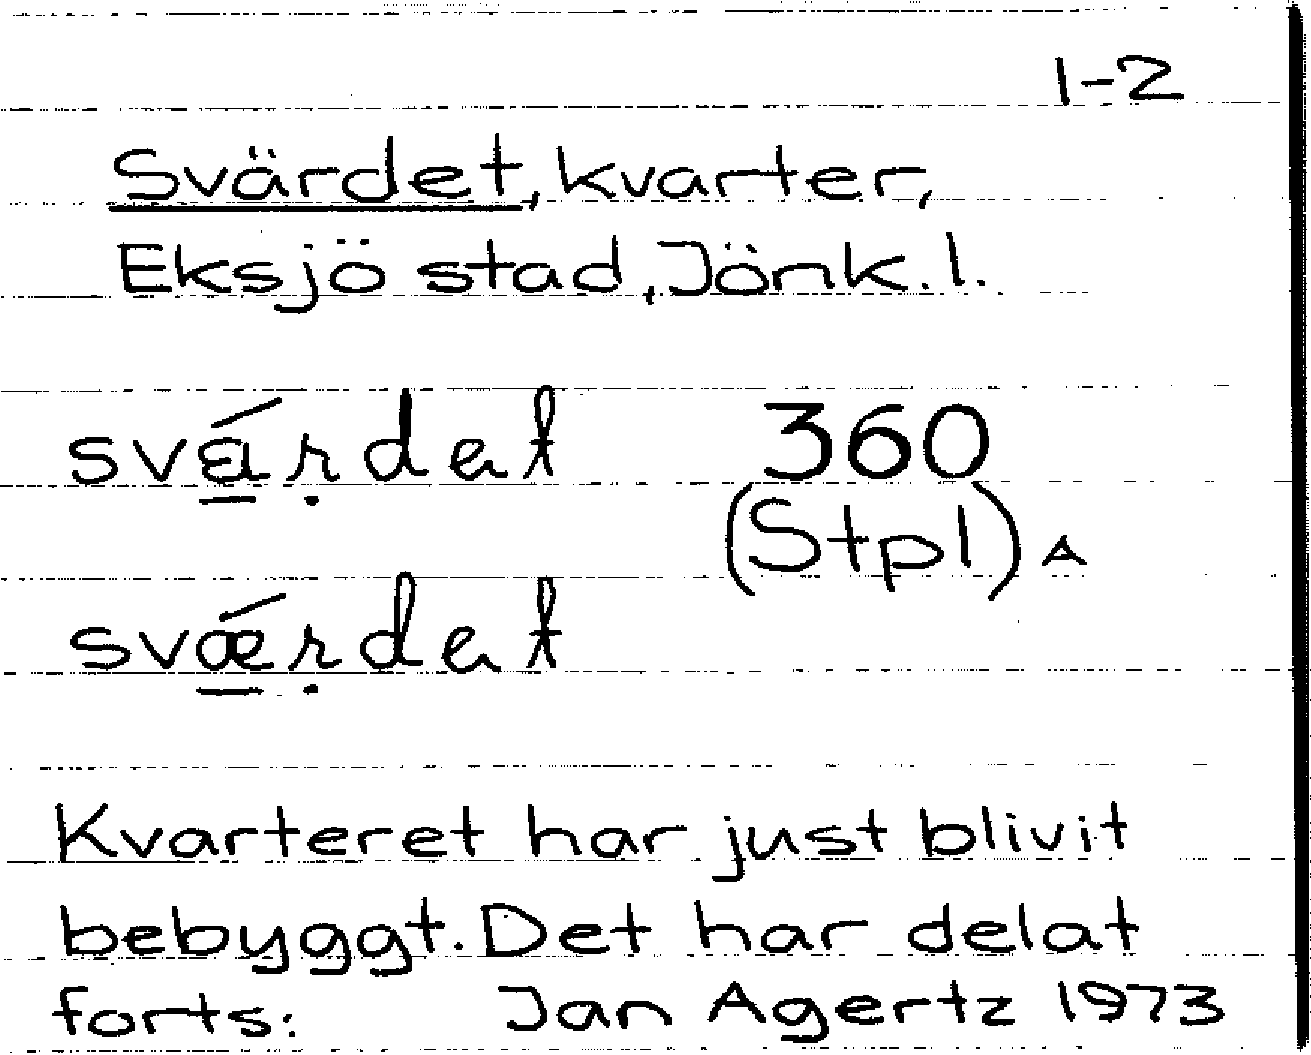 1-2
Svärdet, kvarter,
Eksjö stad, Jönk. l.
svä́ṛdet 360
(Stpl) A
svǽṛdet
Kvarteret har just blivit
bebyggt. Det har delat
forts: Jan Agertz 1973